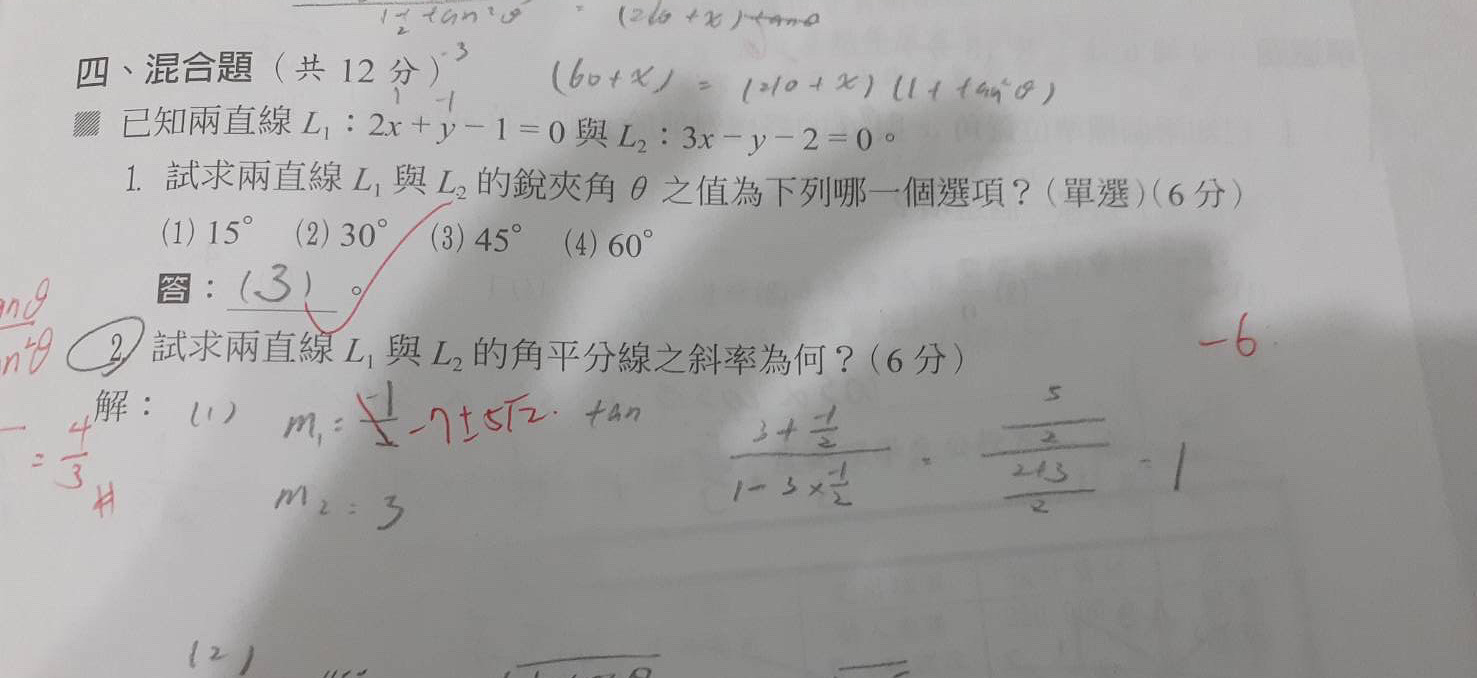 (60+x) = (210+x)(1+tan²θ)
四、混合題（共 12 分）
-3
1 -1
▨ 已知兩直線 L₁：2x+y−1=0 與 L₂：3x−y−2=0。
1. 試求兩直線 L₁ 與 L₂ 的銳夾角 θ 之值為下列哪一個選項？（單選）（6 分）
(1) 15° (2) 30° (3) 45° (4) 60°
答：(3)。
2. 試求兩直線 L₁ 與 L₂ 的角平分線之斜率為何？（6 分）
-6
解：(1) m₁= -7±5√2. tan
(3+-1/2)/(1-3×-1/2) = (5/2)/((2+3)/2) = 1
= 4/3 #
m₂=3
(2)